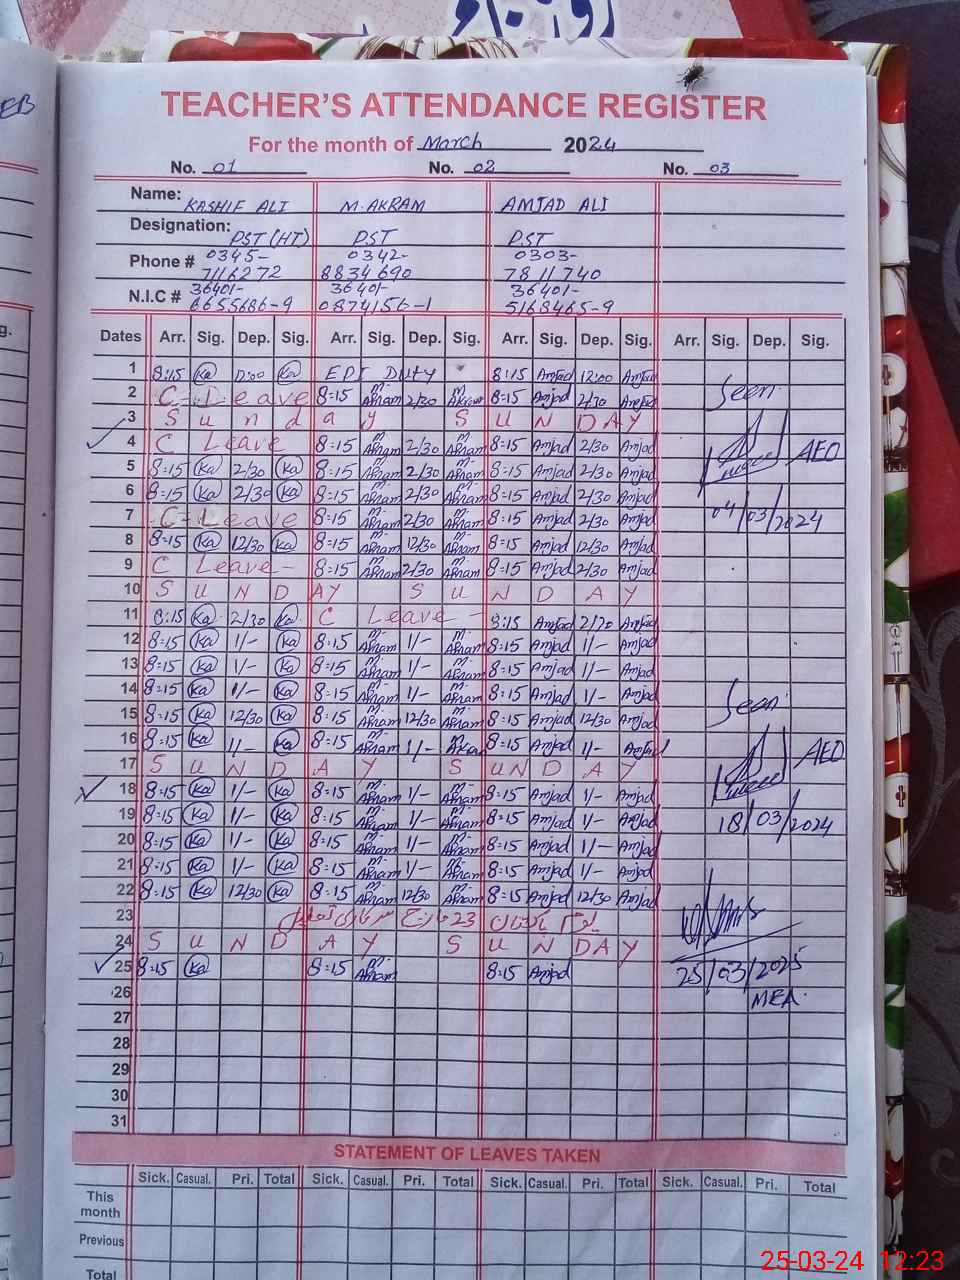 EB
TEACHER'S ATTENDANCE REGISTER
For the month of March 2024
No. 01 No. 02 No. 03
Name: KASHIF ALI M.AKRAM AMJAD ALI
Designation: PST (HT) PST PST
Phone # 0345- 0342- 0303-
7116272 8834690 7811740
N.I.C # 36401- 36401- 36401-
6655686-9 0874156-1 5168465-9
g.
Dates Arr. Sig. Dep. Sig. Arr. Sig. Dep. Sig. Arr. Sig. Dep. Sig. Arr. Sig. Dep. Sig.
1 8:15 Ka Ka EPI Duty 8:15 Amjad 12:00 Amjad
2 C-Leave 8=15 M.Akram 2/30 M.Akram 8=15 Amjad 2/30 Amjad Seen
3 Sunday SUNDAY
4 C Leave 8=15 M.Akram 2/30 M.Akram 8=15 Amjad 2/30 Amjad AEO
5 8:15 Ka 2/30 Ka 8=15 M.Akram 2/30 M.Akram 8=15 Amjad 2/30 Amjad
6 8=15 Ka 2/30 Ka 8=15 M.Akram 2/30 M.Akram 8=15 Amjad 2/30 Amjad
7 C-Leave 8=15 M.Akram 2/30 M.Akram 8=15 Amjad 2/30 Amjad 04/03/2024
8 8=15 Ka 12/30 Ka 8=15 M.Akram 12/30 M.Akram 8=15 Amjad 12/30 Amjad
9 C Leave- 8=15 M.Akram 2/30 M.Akram 8=15 Amjad 2/30 Amjad
10 SUNDAY SUNDAY
11 8:15 Ka 2/30 Ka C Leave - 8:15 Amjad Amjad
12 8=15 Ka 1/- Ka 8:15 M.Akram 1/- M.Akram 8=15 Amjad 1/- Amjad
13 8=15 Ka 1/- Ka 8=15 M.Akram 1/- M.Akram 8=15 Amjad 1/- Amjad
14 8=15 Ka 1/- Ka 8=15 M.Akram 1/- M.Akram 8=15 Amjad 1/- Amjad Seen
15 8=15 Ka 12/30 Ka 8=15 M.Akram 12/30 M.Akram 8=15 Amjad 12/30 Amjad
16 8=15 Ka 1/- Ka 8=15 M.Akram 1/- 8=15 Amjad 1/- Amjad AEO
17 SUNDAY SUNDAY
18 8=15 Ka 1/- Ka 8=15 M.Akram 1/- M.Akram 8=15 Amjad 1/- Amjad
19 8=15 Ka 1/- Ka 8=15 M.Akram 1/- M.Akram 8=15 Amjad 1/- Amjad 18/03/2024
20 8=15 Ka 1/- Ka 8=15 M.Akram 1/- M.Akram 8=15 Amjad 1/- Amjad
21 8=15 Ka 1/- Ka 8=15 M.Akram 1/- M.Akram 8=15 Amjad 1/- Amjad
22 8=15 Ka 12/30 Ka 8=15 M.Akram 12/30 M.Akram 8=15 Amjad 12/30 Amjad
23 یوم پاکستان 23 مارچ سرکاری تعطیل
24 SUNDAY SUNDAY
25 8=15 Ka 8=15 M.Akram 8=15 Amjad 25/03/2025
26 MEA.
27
28
29
30
31
STATEMENT OF LEAVES TAKEN
Sick. Casual. Pri. Total Sick. Casual. Pri. Total Sick. Casual. Pri. Total Sick. Casual. Pri. Total
This month
Previous
Total
25-03-24 12:23